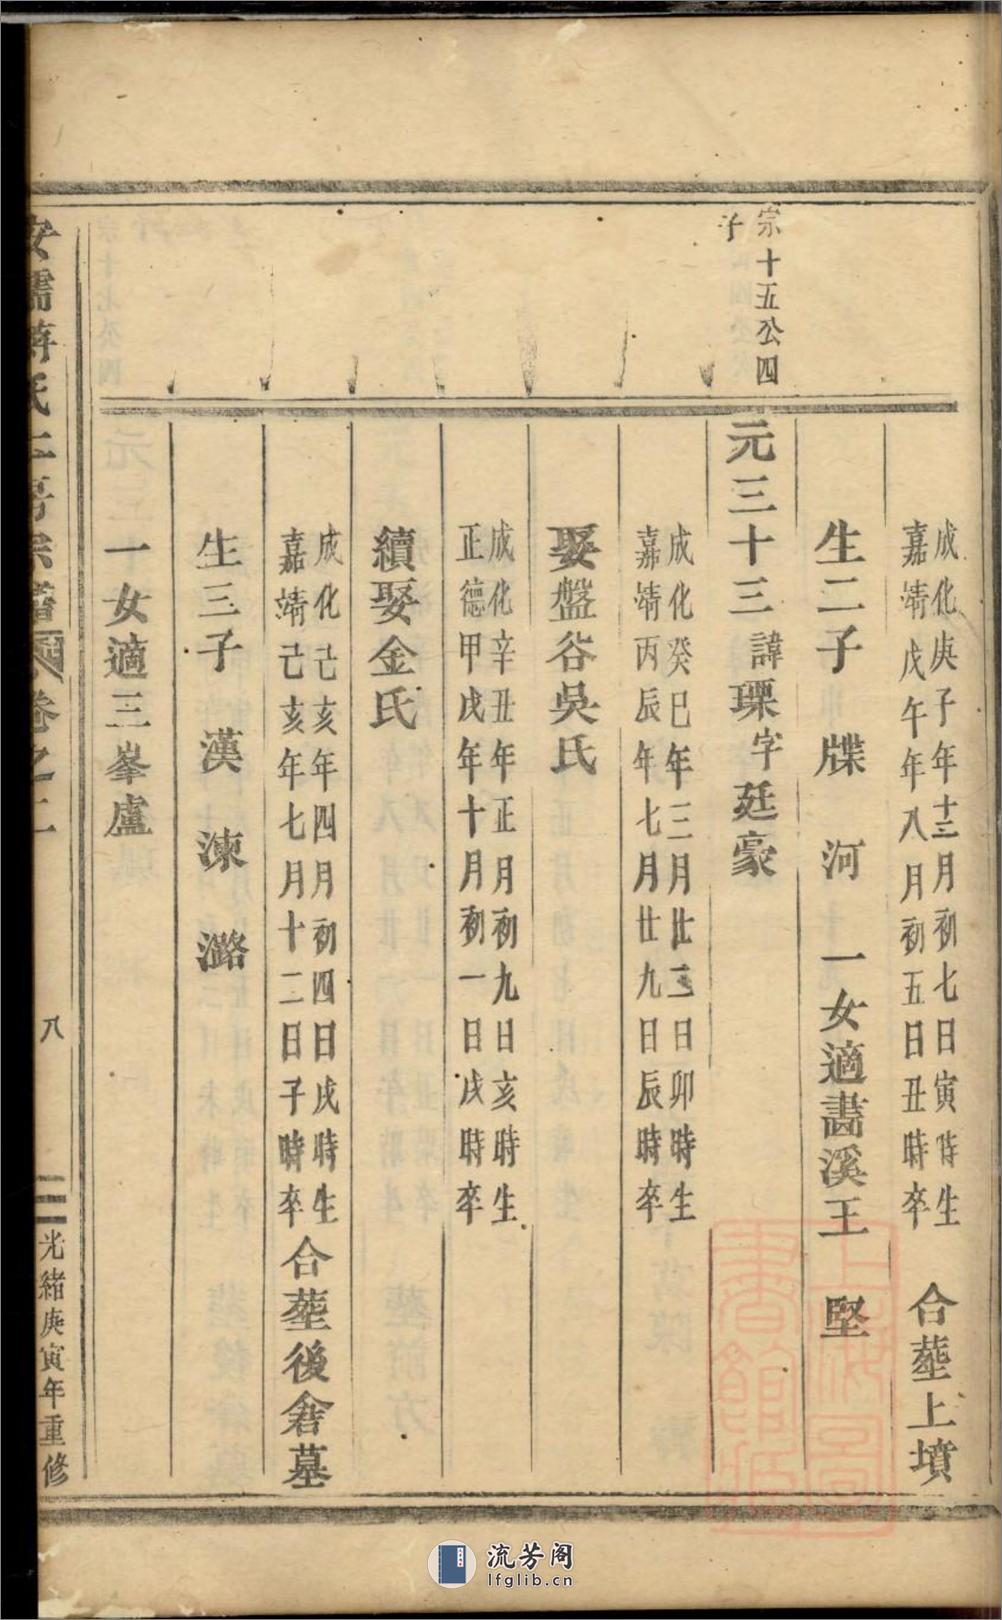 成化庚子年十二月初七日寅時生
嘉靖戊午年八月初五日丑時卒
合塟上墳
生二子 㸁 河 一女適畵溪王 堅
宗十五公四
子
元三十三諱瑮字廷豪
成化癸巳年三月廿三日卯時生
嘉靖丙辰年七月廿九日辰時卒
娶盤谷吳氏
成化辛丑年正月初九日亥時生
正德甲戌年十月初一日戌時卒
續娶金氏
成化己亥年四月初四日戌時生
嘉靖己亥年七月十二日子時卒
合塟後倉墓
生三子 漢 涷 潞
一女適三峯盧
氏二房宗譜 卷之二
八
光緒庚寅年重修
上海圖書館藏
流芳阁
lfglib.cn